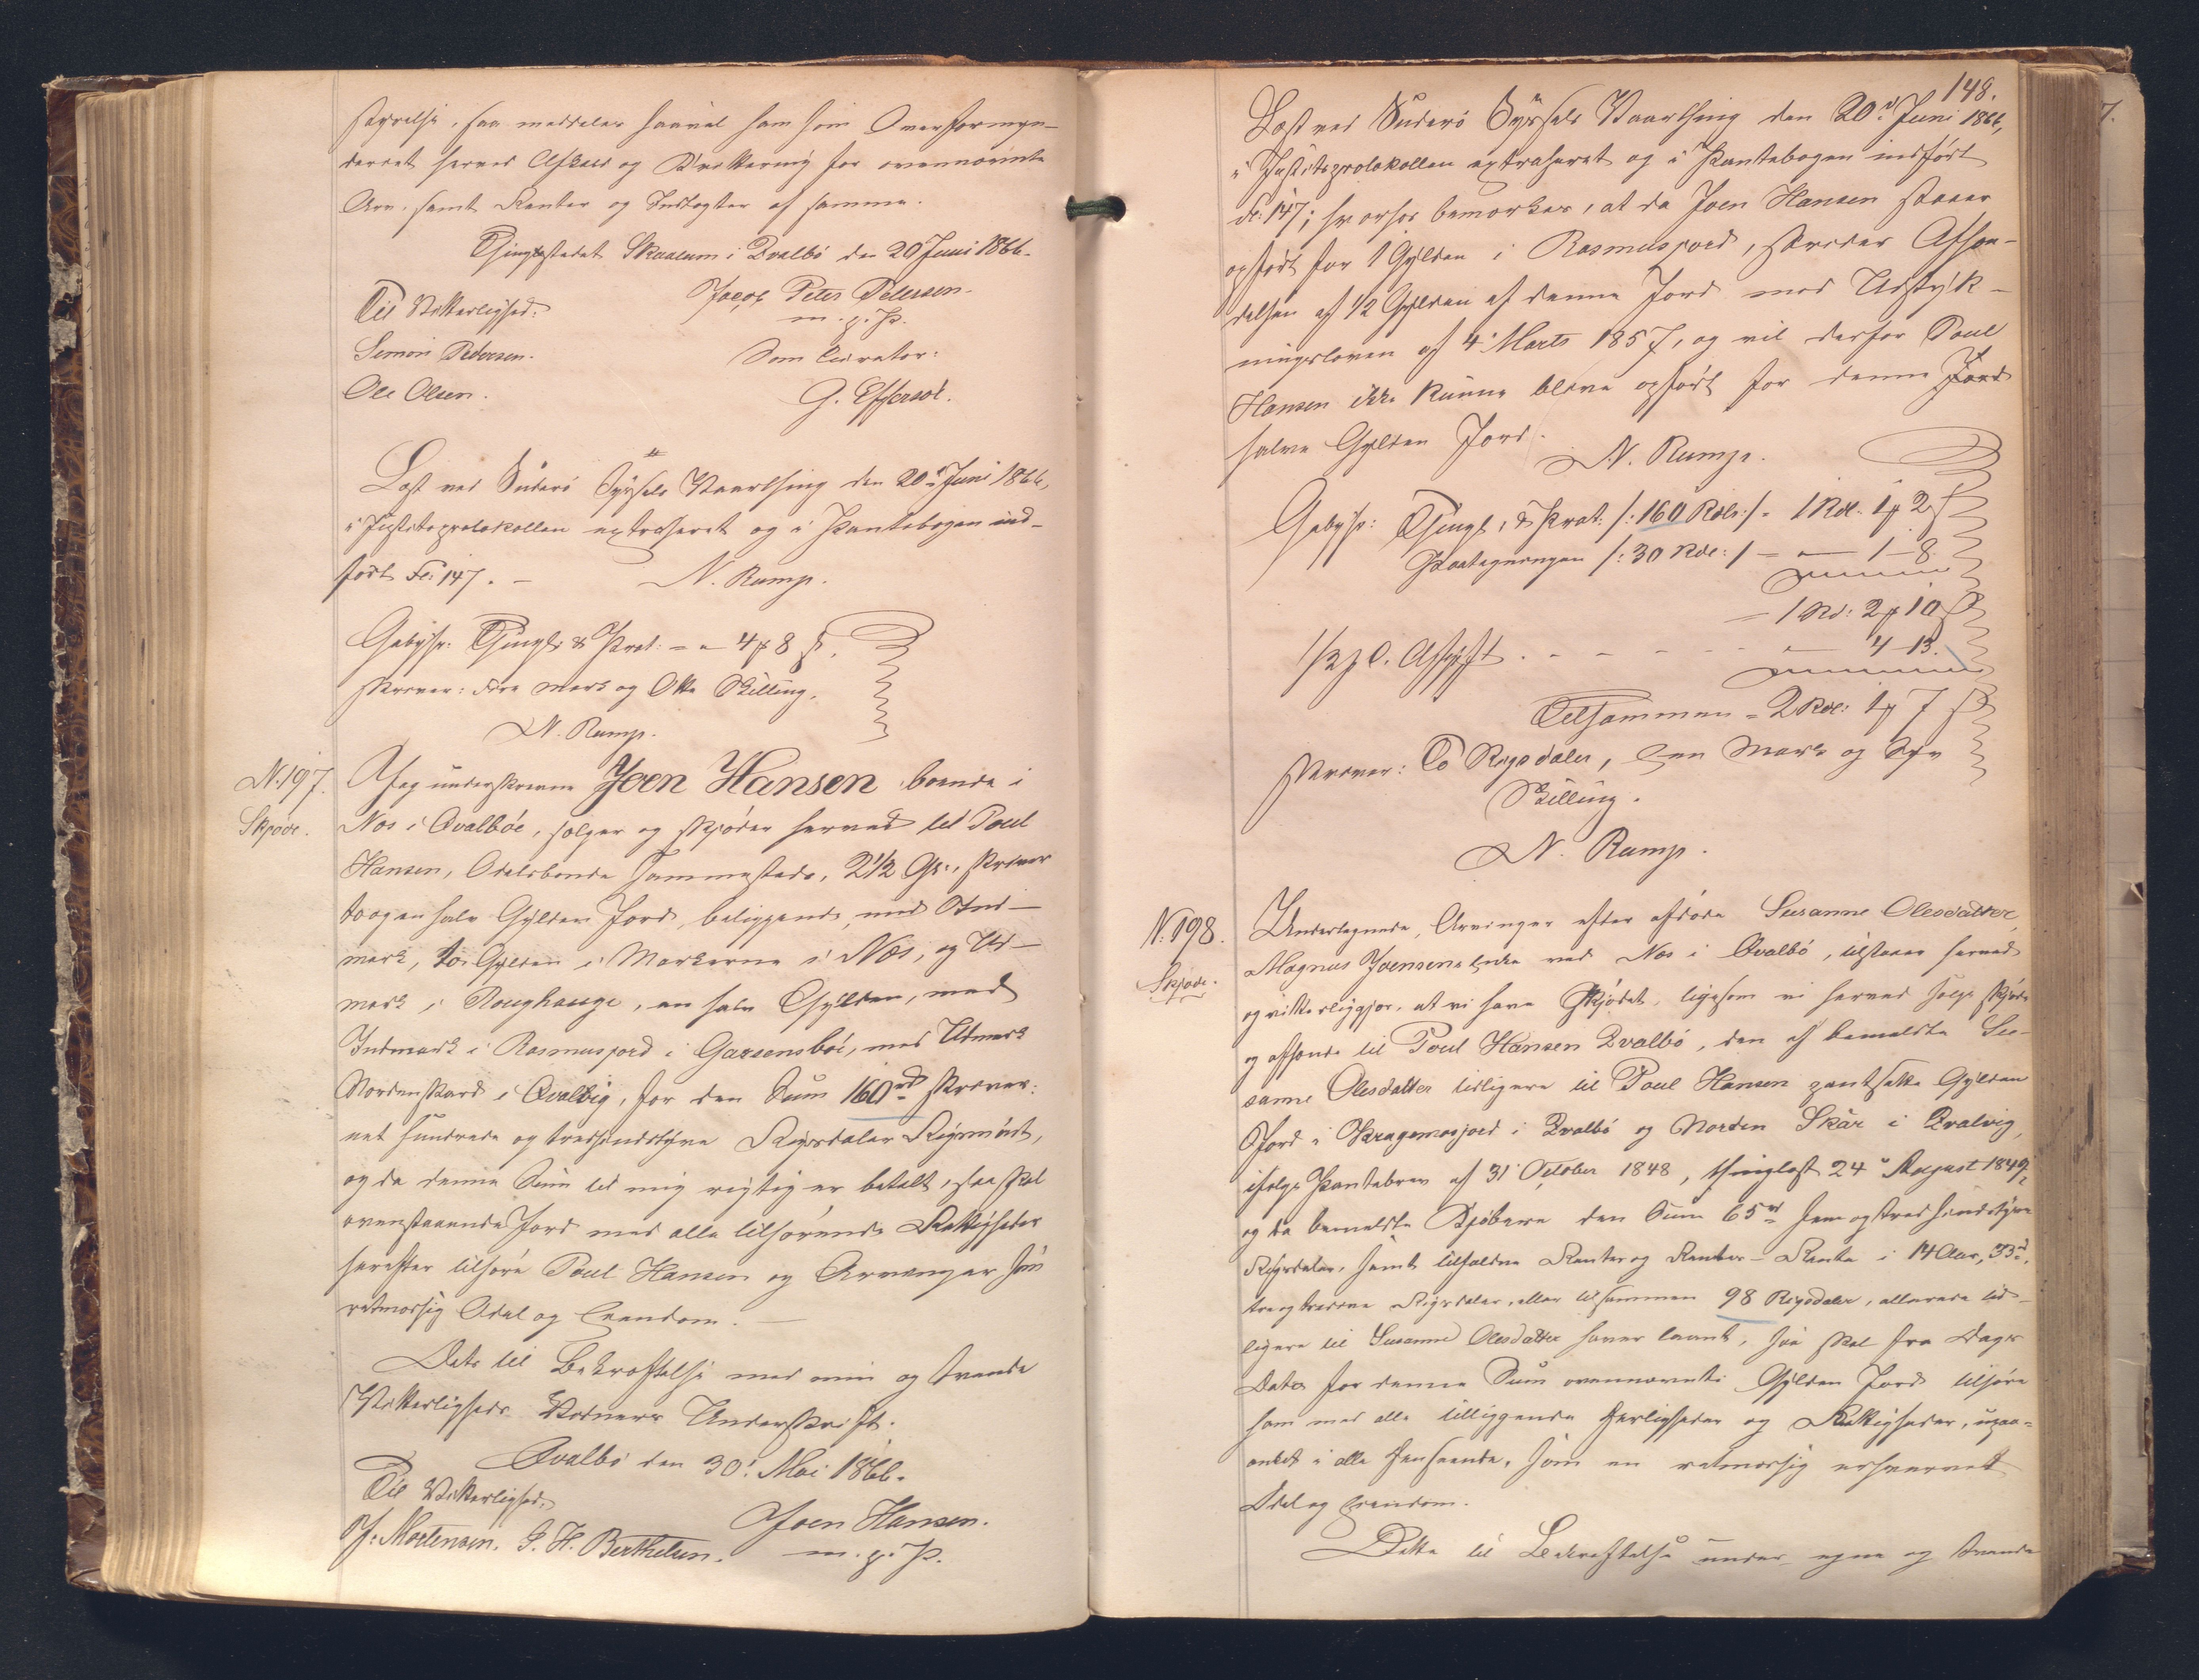 styrelse, saa meddeles saavel ham som Overformyn-
deriet herved Afkald og Kvittering for ovennævnte
Arv, samt Renter og Indtægter af samme.
Thingstedet Skaalum i Qvalbö den 20 Juni 1866.
Til Vitterlighed: Jacob Peter Petersen.
m. p. P.
Simon Pedersen. Som Curator:
Ole Olsen. G. Effersöe.
Læst ved Suderö Syssels Vaarthing den 20de Juni 1866,
i Justitsprotokollen extraheret og i Pantebogen ind-
fört Fo: 147. – N. Rump.
Gebyhr: Thingl: & Prot: = " 4 ₻ 8 ß.
skriver: Fire Mark og Otte Skilling.
N. Rump.
N. 197. Jeg underskrevne Joen Hansen boende i
Skjøde. Næs i Qvalböe, sælger og skjöder herved til Poul
Hansen, Odelsbonde sammesteds, 2 1/2 Gl:, skriver
to og en halv Gylden Jord, beliggende, med Ind-
mark, to Gylden i Markerne i Næs, og Ud-
mark i Roughauge, en halv Gylden, med
Indmark i Rasmusjord i Garsensböe, med Udmark
Nordenskard i Qvalvig, for den Sum 160 rd skriver:
eet hundrede og tredsindstyve Rigsdaler Rigsmönt,
og da denne Sum til mig rigtig er betalt, saa skal
ovenstaaende Jord med alle tilhörende Rettigheder
herefter tilhöre Poul Hansen og Arvinger som
retmæssig Odel og Eiendom. –
Dets til Bekræftelse med min og tvende
Vitterligheds Vidners Underskrift.
Qvalbö den 30. Mai 1866.
Til Vitterlighed: Joen Hansen.
J. Mortensen. J. H. Berthelsen. m. p. P.
148.
Læst ved Suderö Syssels Vaarthing den 20de Juni 1866,
i Justitsprotokollen extraheret og i Pantebogen indfört
Fo: 147; hvorhos bemærkes, at da Joen Hansen staaer
opfört for 1 Gylden i Rasmusjord, strider Afhæn-
delsen af 1/2 Gylden af denne Jord mod Udstyk-
ningsloven af 4 Marts 1857, og vil derfor Poul
Hansen ikke kunne blive opfört for denne Jord
halve Gylden Jord.
N. Rump.
Gebyhr: Thingl: & Prot: /: 160 Rdlr :/ = 1 Rdl. 1 ₻ 2 ß
Paategningen /: 30 Rdl: / – – 1 – 8.
– 1 Rd: 2 ₻ 10 ß
1/2 p C. Afgift . – – – – – 4 – 13.
Tilsammen = 2 Rdl: 1 ₻ 7 ß
skriver: To Rigsdaler, Een Mark og Syv
Skilling.
N. Rump.
N. 198. Undertegnede, Arvinger efter afdöde Susanne Olesdatter,
Skjøde. Magnus Joensens Enke ved Næs i Qvalbö, tilstaaer herved
og vitterliggjör, at vi have skjödet, ligesom vi herved sælge skjöde
og afhænde til Poul Hansen Qvalbö, den af bemeldte Su-
sanne Olesdatter tidligere til Poul Hansen pantsatte Gylden
Jord i Kragemosjord i Qvalbö og Norden Skár i Qvalvig,
ifölge Pantebrev af 31 October 1848, thinglæst 24 August 1849,
og da bemeldte Kjöbere den Sum 65 rd fem og tredsindstyve
Rigsdaler, samt tilfaldne Renter og Renters-Rente i 14 Aar, 33 rd,
tre og tredive Rigsdaler, eller tilsammen 98 Rigsdaler, allerede tid-
ligere til Susanne Olesdatter haver laant, saa skal fra Dags
Dato for denne Sum ovennævnte Gylden Jord tilhöre
ham med alle tilliggende Herligheder og Rettigheder, upaa-
anket i alle Henseende, som en retmæssig erhvervet
Odel og Eiendom.
Dette til Bekræftelse under egne og tvende